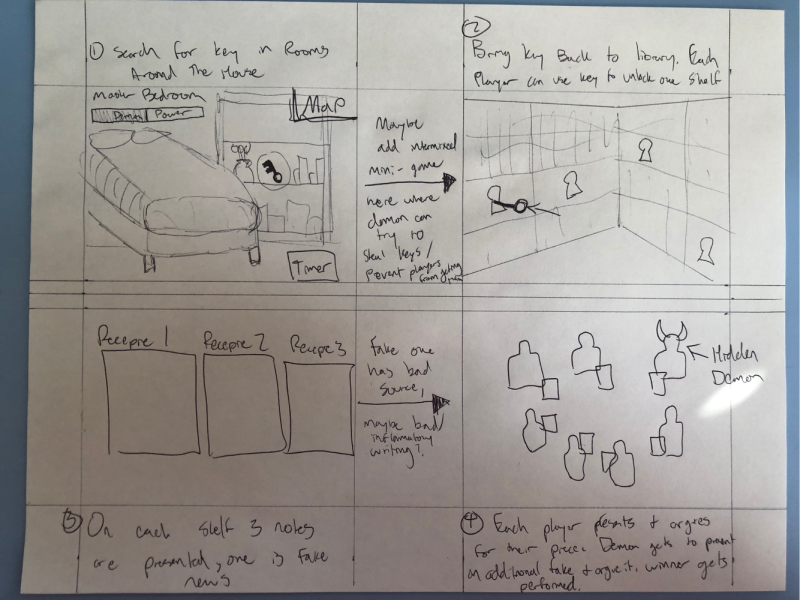 ① Search for key in Rooms
Around The House
Master Bedroom
Power
Map
Timer
Maybe
add
mini-game
here where
demon can
try to
steal keys/
prevent players
from getting
②
Bring key Back to library. Each
Player can use key to unlock one shelf
Recepre 1
Recepre 2
Recepre 3
Fake one
has bad
source,
maybe bad
inflammatory
writing?
Hidden
Demon
③ On each shelf 3 notes
are presented, one is fake
news
④ Each player presents + argues
for their piece. Demon gets to present
an additional fake + argue it, winner gets
performed.